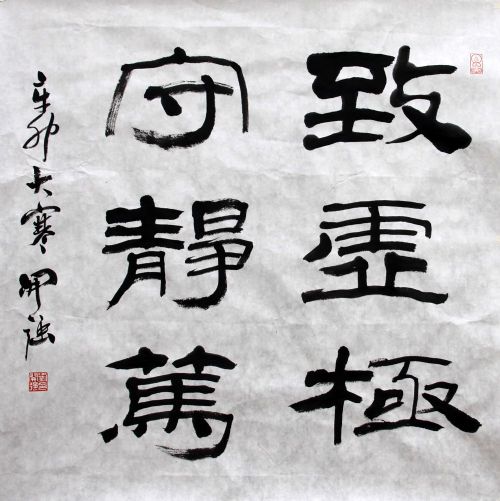 致虛極
守靜篤
辛卯大寒